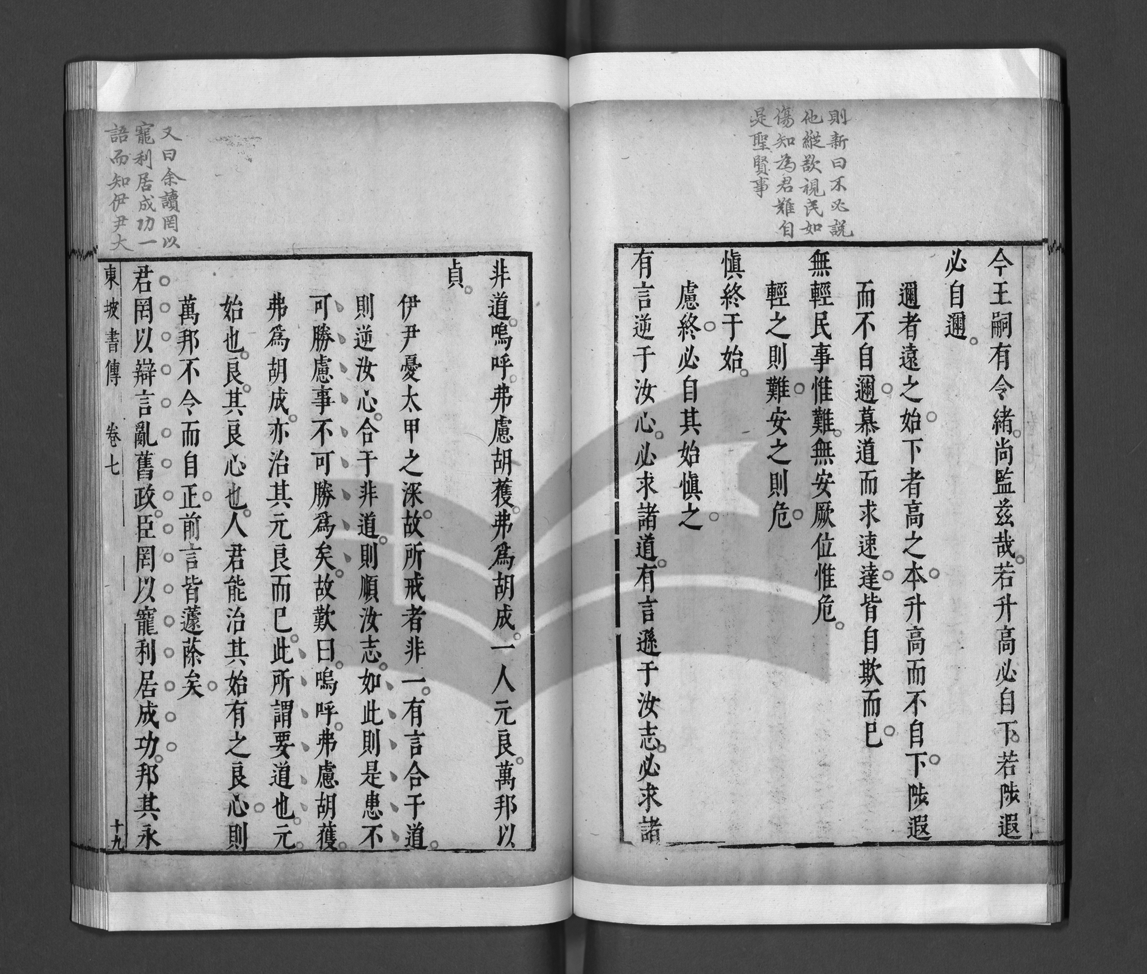 則新曰不必說
他縱欲視民如
傷知為君難自
是聖賢事
今王嗣有令緒。尚監茲哉。若升高必自下。若陟遐
必自邇。
邇者遠之始。下者高之本。升高而不自下。陟遐
而不自邇。慕道而求速達。皆自欺而已。
無輕民事惟難。無安厥位惟危。
輕之則難。安之則危。
慎終于始。
慮終必自其始慎之。
有言逆于汝心。必求諸道。有言遜于汝志。必求諸
又曰余讀罔以
寵利居成功一
語而知伊尹大
非道。嗚呼。弗慮胡獲。弗爲胡成。一人元良。萬邦以
貞。
伊尹憂太甲之深。故所戒者非一。有言合于道。
則逆汝心。合于非道。則順汝志。如此則是患不
可勝慮事不可勝爲矣。故歎曰。嗚呼。弗慮胡獲。
弗爲胡成。亦治其元良而已。此所謂要道也。元
始也。良。其良心也。人君能治其始有之良心。則
萬邦不令而自正。前言皆蘧蒢矣。
君罔以辯言亂舊政。臣罔以寵利居成功。邦其永
東坡書傳 卷七 十九